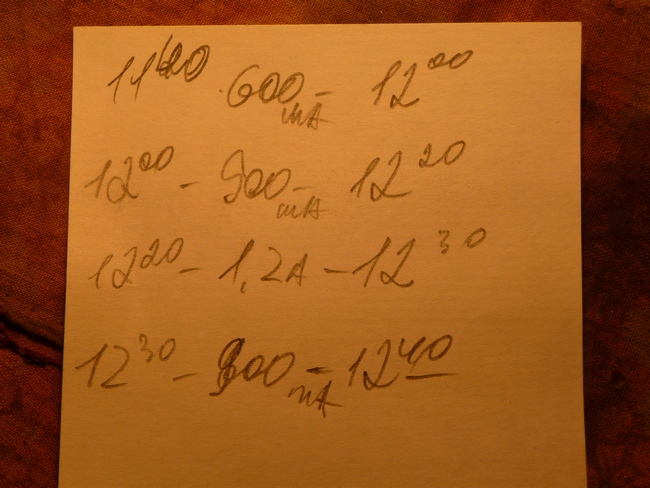 11²⁰ 600 mA - 12⁰⁰
12⁰⁰ - 900 mA - 12²⁰
12²⁰ - 1,2A - 12³⁰
12³⁰ - 900 mA - 12⁴⁰